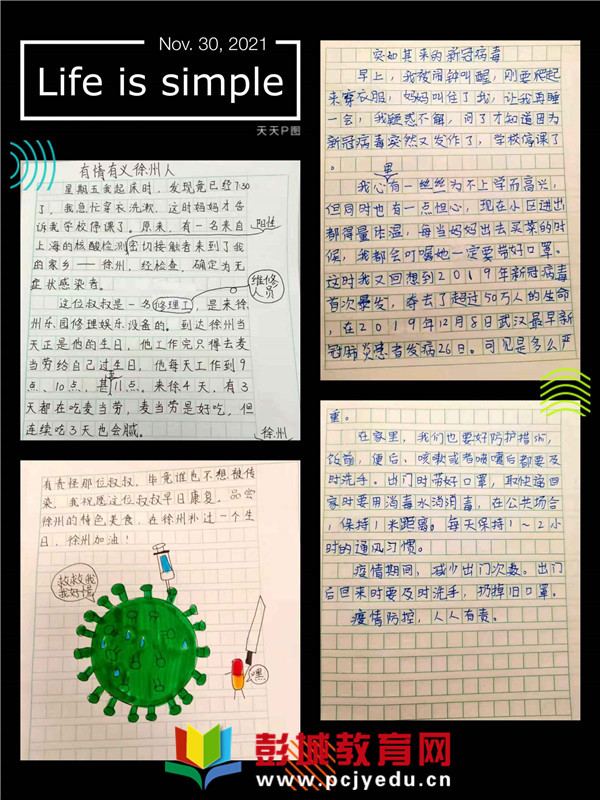 Nov. 30, 2021
Life is simple
天天P图
有情有义徐州人
星期五我起床时，发现竟已经7:30
了，我急忙穿衣洗漱，这时妈妈才告
诉我学校停课了。原来，有一名来自
阳性
上海的核酸检测密切接触者来到了我
的家乡——徐州，经检查，确定为无
症状感染者。
维修
人员
这位叔叔是一名修理工，是来徐
州乐园修理娱乐设备的。到达徐州当
天正是他的生日，他工作完只得去麦
当劳给自己过生日，他每天工作到9
点、10点，甚至11点。来徐4天，有3
天都在吃麦当劳，麦当劳是好吃，但
连续吃3天也会腻。
徐州
有责怪那位叔叔，毕竟谁也不想被传
染，我祝愿这位叔叔早日康复，品尝
徐州的特色美食，在徐州补过一个生
日，徐州加油！
救救我
我好慌
嘿
突如其来的新冠病毒
早上，我被闹钟叫醒，刚要爬起
来穿衣服，妈妈叫住了我，让我再睡
一会，我疑惑不解，问了才知道因为
新冠病毒突然又发作了，学校停课了
。
我心里有一丝丝为不上学而高兴，
但同时也有一点担心，现在小区进出
都得量体温，每当妈妈出去买菜的时
候，我都会叮嘱她一定要带好口罩。
这时我又回想到2019年新冠病毒
首次暴发，夺去了超过50万人的生命
，在2019年12月8日武汉最早新
冠肺炎患者发病26日。可见是多么严
重。
在家里，我们也要好防护措施，
饭前，便后、咳嗽或者喷嚏后都要及
时洗手。出门时带好口罩，取快递回
家时要用消毒水消消毒，在公共场合
，保持1米距离。每天保持1～2小
时的通风习惯。
疫情期间，减少出门次数。出门
后回来时要及时洗手，扔掉旧口罩。
疫情防控，人人有责。
彭城教育网
www.pcjyedu.cn